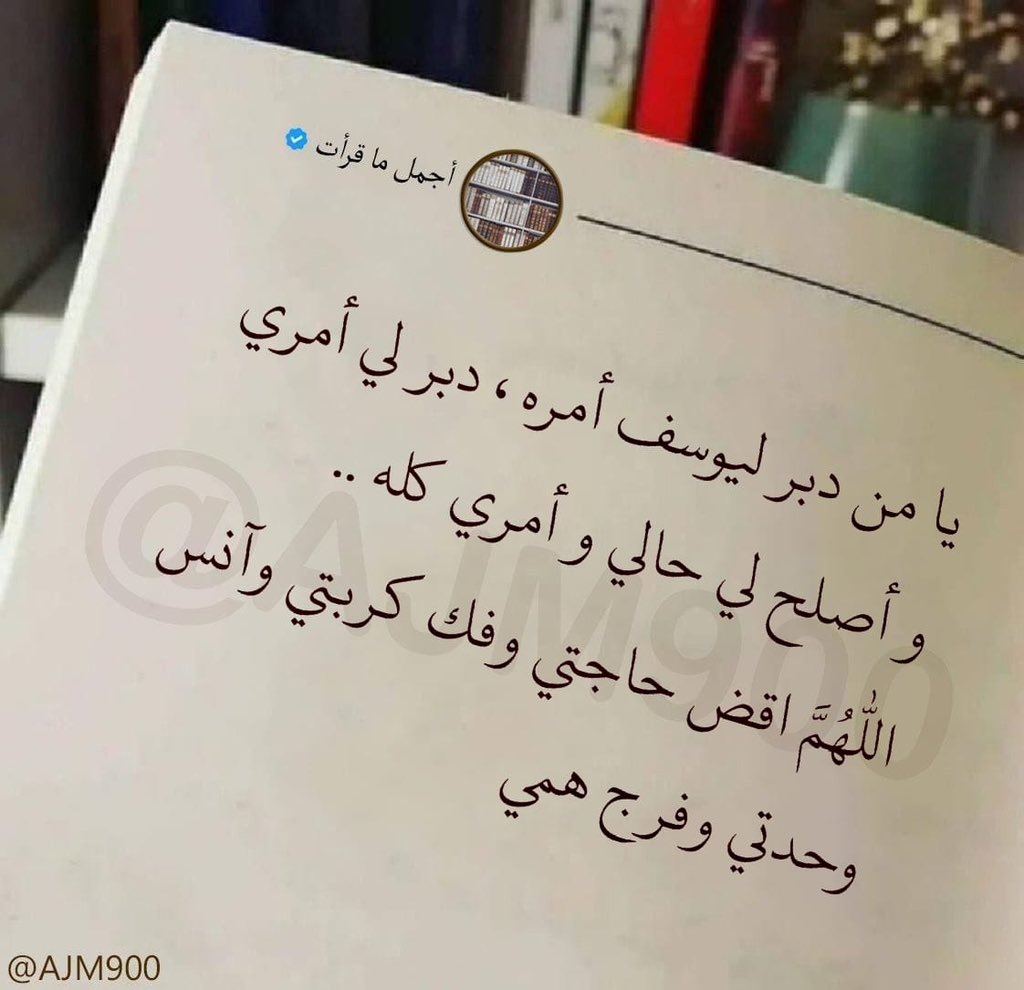 أجمل ما قرأت
يا من دبر ليوسف أمره، دبر لي أمري
و أصلح لي حالي و أمري كله ..
اللَّهُمَّ اقض حاجتي وفك كربتي وآنس
وحدتي وفرج همي
@AJM900
@AJM900